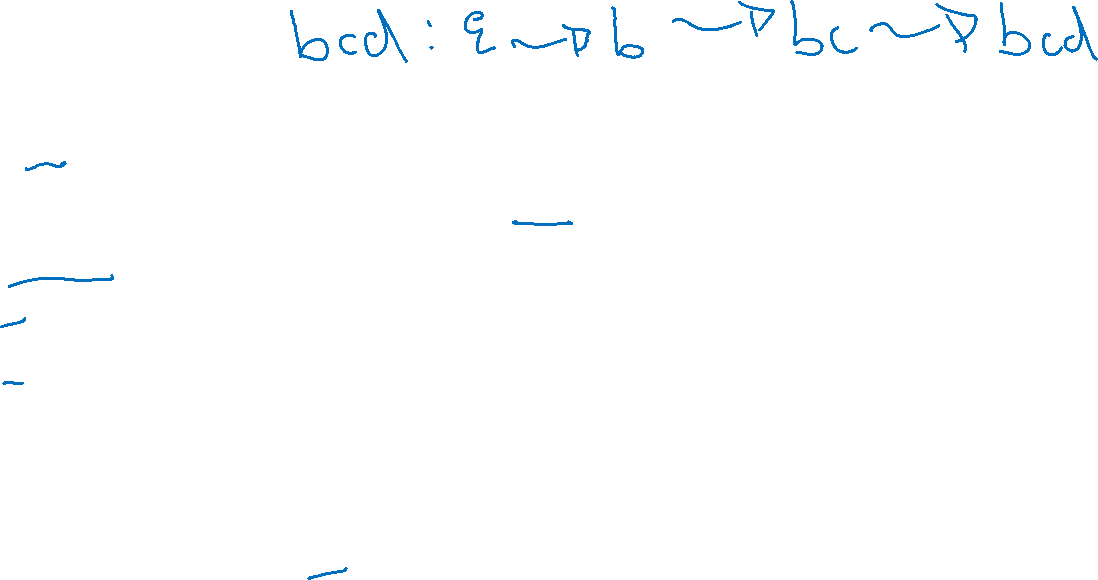 bcd: ε ⇝ b ⇝ bc ⇝ bcd